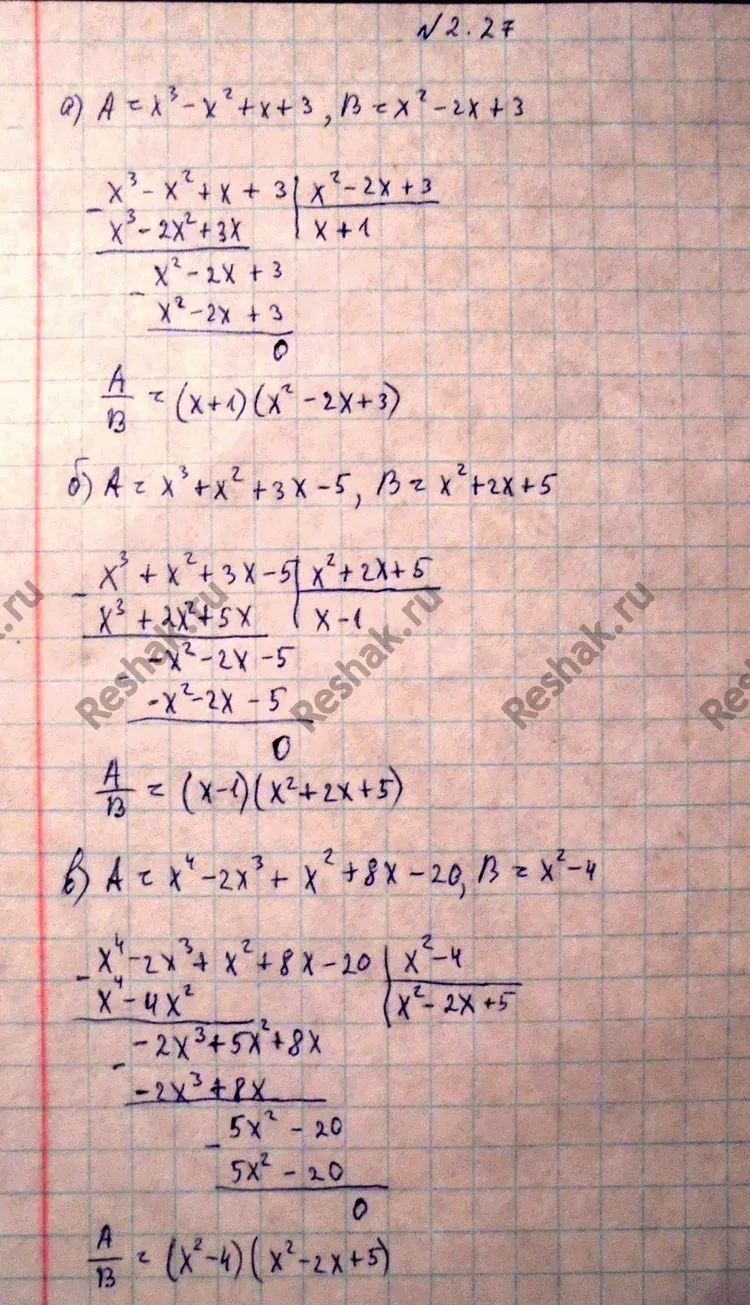 №2.27
а) A = x³ - x² + x + 3, B = x² - 2x + 3
- x³ - x² + x + 3 | x² - 2x + 3
x³ - 2x² + 3x | x + 1
- x² - 2x + 3
x² - 2x + 3
0
A/B = (x+1)(x² - 2x + 3)
б) A = x³ + x² + 3x - 5, B = x² + 2x + 5
- x³ + x² + 3x - 5 | x² + 2x + 5
x³ + 2x² + 5x | x - 1
- x² - 2x - 5
- x² - 2x - 5
0
A/B = (x-1)(x² + 2x + 5)
в) A = x⁴ - 2x³ + x² + 8x - 20, B = x² - 4
- x⁴ - 2x³ + x² + 8x - 20 | x² - 4
x⁴ - 4x² | x² - 2x + 5
- -2x³ + 5x² + 8x
-2x³ + 8x
- 5x² - 20
5x² - 20
0
A/B = (x² - 4)(x² - 2x + 5)
Reshak.ru
Reshak.ru
Reshak.ru